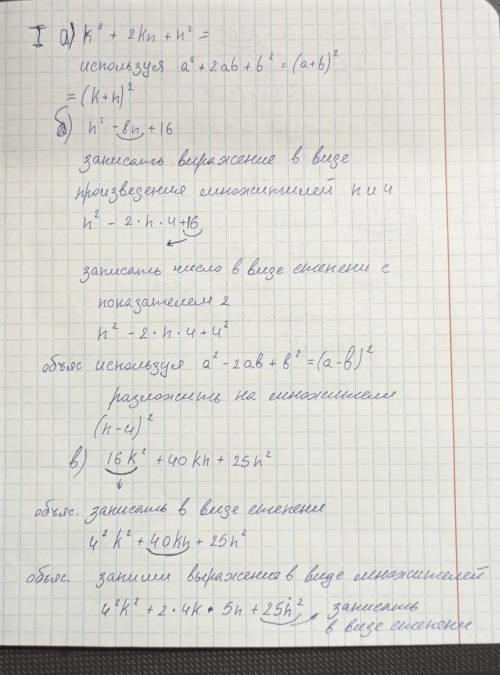 I а) k² + 2kn + n² =
используя a² + 2ab + b² = (a+b)²
= (k+n)²
б) n² - 8n + 16
записать выражение в виде
произведения множителей n и 4
n² - 2·n·4+16
записать число в виде степени с
показателем 2
n² - 2·n·4+4²
объяс используя a² - 2ab + b² = (a-b)²
разложить на множители
(n-4)²
в) 16k² + 40kn + 25n²
объяс. записать в виде степени
4²k² + 40kn + 25n²
объяс. запиши выражение в виде множителей
4²k² + 2·4k·5n + 25n² записать
в виде степени